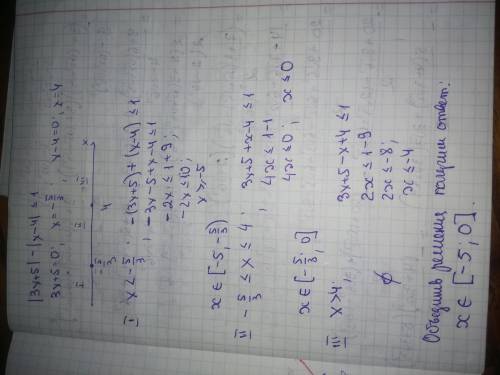 |3x+5|-|x-4| ≤ 1
3x+5=0; x=-5/3; x-4=0; x=4
I II III
-5/3 4 x
I) x<-5/3; -(3x+5)+(x-4)≤1
-3x-5+x-4≤1
-2x≤1+9;
-2x≤10;
x≥-5
x∈[-5,-5/3)
II -5/3≤x≤4; 3x+5+x-4≤1
4x≤1-1
4x≤0; x≤0
x∈[-5/3; 0]
III x>4; 3x+5-x+4≤1
2x≤1-9
2x≤-8;
∅ x≤-4
Объединив решения получим ответ:
x∈[-5; 0].